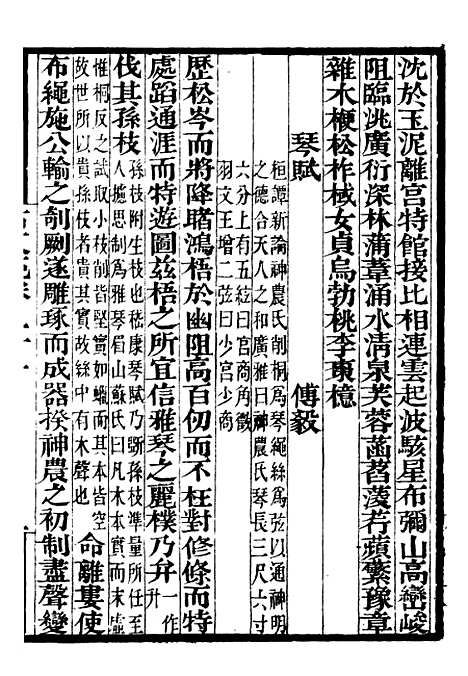 沈於玉泥離宮特館接比相連雲起波駭星布彌山高巒峻
阻臨洮廣衍深林蒲葦涌水清泉芙蓉菡萏菱荇蘋蘩豫章
雜木楩松柞棫女貞烏勃桃李棗檍
琴賦 傅毅
桓譚新論神農氏削桐為琴繩絲為弦以通神明
之德合天人之和廣雅曰神農氏琴長三尺六寸
六分上有五絃曰宮商角徵
羽文王增二弦曰少宮少商
歷松岑而將降睹鴻梧於幽阻高百仞而不枉對修條而特
處蹈通涯而特遊圖茲梧之所宜信雅琴之麗樸乃弁一作升
伐其孫枝孫枝附生枝也嵇康琴賦乃斲孫枝準量所任至
人攄思制為雅琴眉山蘇氏曰凡木本實而末虛
惟桐反之試取小枝削皆堅實如蠟而其本皆空
故世所以貴孫枝者貴其實故絲中有木聲也命離婁使
布繩施公輸之剞劂遂雕琢而成器揆神農之初制盡聲變